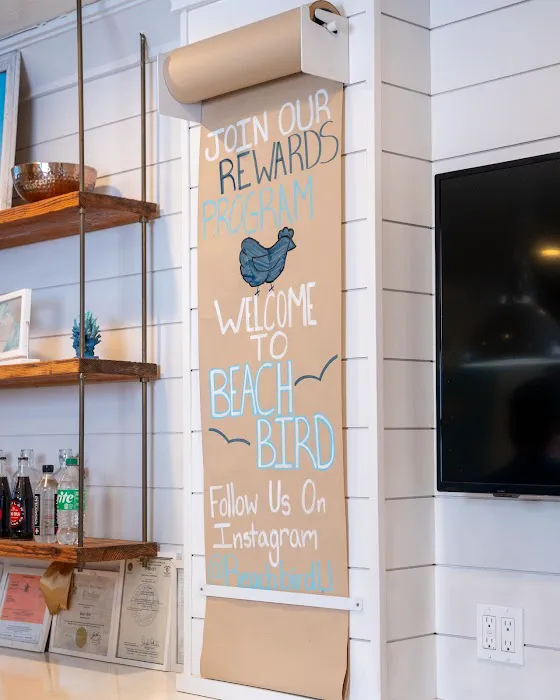 JOIN OUR
REWARDS
PROGRAM
WELCOME
TO
BEACH
BIRD
Follow Us On
Instagram
@BeachbirdLI